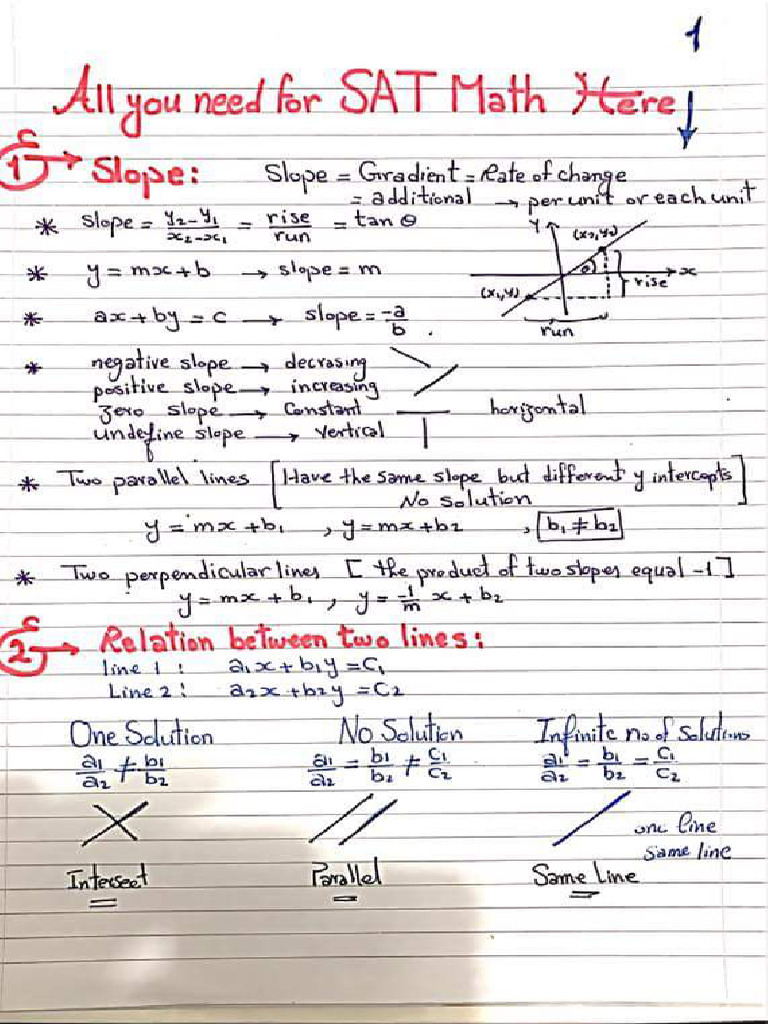 1
All you need for SAT Math Here ↓
1 → Slope: Slope = Gradient = Rate of change
= additional → per unit or each unit
* slope = y₂-y₁/x₂-x₁ = rise/run = tan θ
y (x₂,y₂)
* y = mx + b → slope = m
θ x
(x₁,y₁) rise
* ax + by = c → slope = -a/b .
run
* negative slope → decrasing
positive slope → increasing
zero slope → Constant horizontal
undefine slope → vertical
* Two parallel lines [Have the same slope but different y intercepts
No solution]
y = mx + b₁ , y = mx + b₂ , b₁ ≠ b₂
* Two perpendicular lines [ the product of two slopes equal -1 ]
y = mx + b₁ , y = -1/m x + b₂
2 → Relation between two lines:
Line 1 : a₁x + b₁y = C₁
Line 2 : a₂x + b₂y = C₂
One Solution No Solution Infinite no of solutions
a₁/a₂ ≠ b₁/b₂ a₁/a₂ = b₁/b₂ ≠ C₁/C₂ a₁/a₂ = b₁/b₂ = C₁/C₂
one line
same line
Intersect Parallel Same Line